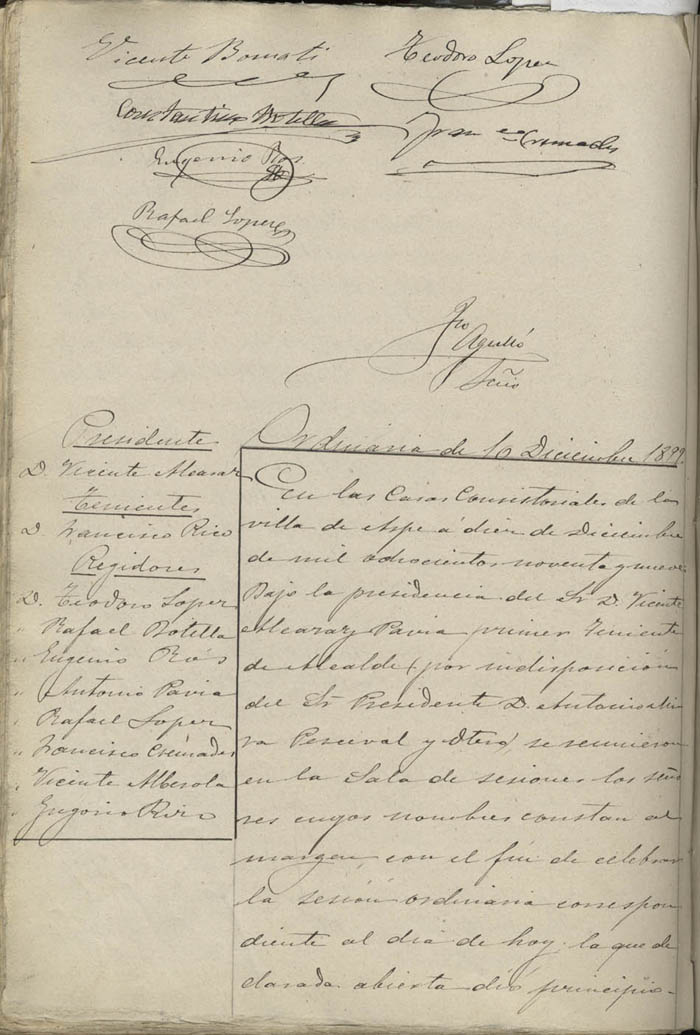 Vicente Bomati
Teodoro Lopez
Constantino Botella
Franco Cremades
Eugenio Ros
Rafael Lopez
Fco
Agulló
Srio
Presidente
D. Vicente Alcaraz
Tenientes
D. Francisco Rico
Regidores
D. Teodoro Lopez
" Rafael Botella
" Eugenio Rós
" Antonio Pavia
" Rafael Lopez
" Francisco Cremades
" Vicente Alberola
" Gregorio Rizo
Ordinaria de 10 Diciembre 1899.
En las Casas Consistoriales de la
villa de Aspe á diez de Diciembre
de mil ochocientos noventa y nueve:
Bajo la presidencia del Sr. D. Vicente
Alcaraz Pavia primer Teniente
de Alcalde (por indisposición
del Sr. Presidente D. Antonio
Percival y Otero) se reunieron
en la Sala de sesiones los seño
res cuyos nombres constan al
margen, con el fin de celebrar
la sesión ordinaria correspon
diente al dia de hoy, la que de
clarada abierta dió principio-